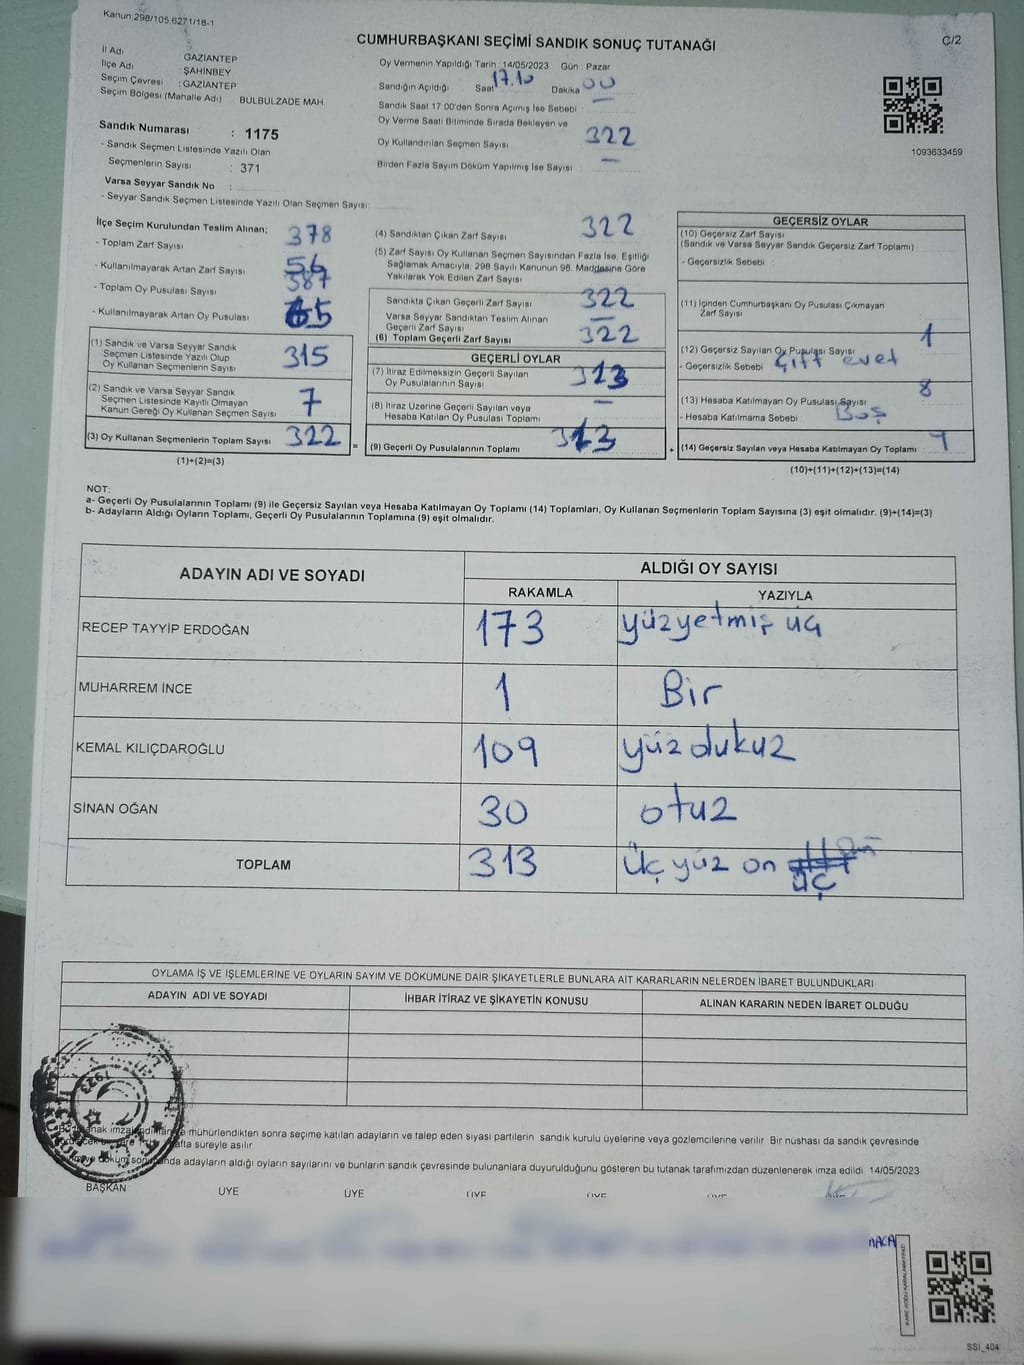 Kanun:298/105,6271/18-1
C/2
CUMHURBAŞKANI SEÇİMİ SANDIK SONUÇ TUTANAĞI
İl Adı GAZİANTEP
İlçe Adı ŞAHİNBEY
Seçim Çevresi : GAZİANTEP
Seçim Bölgesi (Mahalle Adı) BULBULZADE MAH.
Sandık Numarası : 1175
- Sandık Seçmen Listesinde Yazılı Olan
Seçmenlerin Sayısı : 371
Varsa Seyyar Sandık No :
- Seyyar Sandık Seçmen Listesinde Yazılı Olan Seçmen Sayısı:
Oy Vermenin Yapıldığı Tarih : 14/05/2023 Gün : Pazar
Sandığın Açıldığı Saat 17.10 Dakika 00
Sandık Saat 17:00'den Sonra Açımış İse Sebebi : —
Oy Verme Saati Bitiminde Sırada Bekleyen ve
Oy Kullandırılan Seçmen Sayısı 322
Birden Fazla Sayım Döküm Yapılmış İse Sayısı : —
1093633459
İlçe Seçim Kurulundan Teslim Alınan;
- Toplam Zarf Sayısı : 378
- Kullanılmayarak Artan Zarf Sayısı : 56
- Toplam Oy Pusulası Sayısı : 387
- Kullanılmayarak Artan Oy Pusulası : 65
(1) Sandık ve Varsa Seyyar Sandık
Seçmen Listesinde Yazılı Olup
Oy Kullanan Seçmenlerin Sayısı : 315
(2) Sandık ve Varsa Seyyar Sandık
Seçmen Listesinde Kayıtlı Olmayan
Kanun Gereği Oy Kullanan Seçmen Sayısı : 7
(3) Oy Kullanan Seçmenlerin Toplam Sayısı : 322
(1)+(2)=(3)
(4) Sandıktan Çıkan Zarf Sayısı : 322
(5) Zarf Sayısı Oy Kullanan Seçmen Sayısından Fazla İse, Eşitliği
Sağlamak Amacıyla, 298 Sayılı Kanunun 98. Maddesine Göre
Yakılarak Yok Edilen Zarf Sayısı :
Sandıkta Çıkan Geçerli Zarf Sayısı : 322
Varsa Seyyar Sandıktan Teslim Alınan
Geçerli Zarf Sayısı : —
(6) Toplam Geçerli Zarf Sayısı : 322
GEÇERLİ OYLAR
(7) İtiraz Edilmeksizin Geçerli Sayılan
Oy Pusulalarının Sayısı : 313
(8) İtiraz Üzerine Geçerli Sayılan veya
Hesaba Katılan Oy Pusulası Toplamı : —
= (9) Geçerli Oy Pusulalarının Toplamı : 313
GEÇERSİZ OYLAR
(10) Geçersiz Zarf Sayısı
(Sandık ve Varsa Seyyar Sandık Geçersiz Zarf Toplamı)
- Geçersizlik Sebebi :
(11) İçinden Cumhurbaşkanı Oy Pusulası Çıkmayan
Zarf Sayısı :
(12) Geçersiz Sayılan Oy Pusulası Sayısı : 1
- Geçersizlik Sebebi : Çift evet
(13) Hesaba Katılmayan Oy Pusulası Sayısı : 8
- Hesaba Katılmama Sebebi : Boş
+ (14) Geçersiz Sayılan veya Hesaba Katılmayan Oy Toplamı :
(10)+(11)+(12)+(13)=(14)
NOT:
a- Geçerli Oy Pusulalarının Toplamı (9) ile Geçersiz Sayılan veya Hesaba Katılmayan Oy Toplamı (14) Toplamları, Oy Kullanan Seçmenlerin Toplam Sayısına (3) eşit olmalıdır. (9)+(14)=(3)
b- Adayların Aldığı Oyların Toplamı, Geçerli Oy Pusulalarının Toplamına (9) eşit olmalıdır.
ADAYIN ADI VE SOYADI ALDIĞI OY SAYISI
RAKAMLA YAZIYLA
RECEP TAYYİP ERDOĞAN 173 yüzyetmiş üç
MUHARREM İNCE 1 Bir
KEMAL KILIÇDAROĞLU 109 yüz dukuz
SİNAN OĞAN 30 otuz
TOPLAM 313 Üç yüz on üç
OYLAMA İŞ VE İŞLEMLERİNE VE OYLARIN SAYIM VE DÖKÜMÜNE DAİR ŞİKAYETLERLE BUNLARA AİT KARARLARIN NELERDEN İBARET BULUNDUKLARI
ADAYIN ADI VE SOYADI İHBAR İTİRAZ VE ŞİKAYETİN KONUSU ALINAN KARARIN NEDEN İBARET OLDUĞU
mühürlendikten sonra seçime katılan adayların ve talep eden siyasi partilerin sandık kurulu üyelerine veya gözlemcilerine verilir. Bir nüshası da sandık çevresinde
hafta süreyle asılır.
adayların aldığı oyların sayılarını ve bunların sandık çevresinde bulunanlara duyurulduğunu gösteren bu tutanak tarafımızdan düzenlenerek imza edildi. 14/05/2023
BAŞKAN ÜYE ÜYE ÜYE ÜYE ÜYE
SSI_404